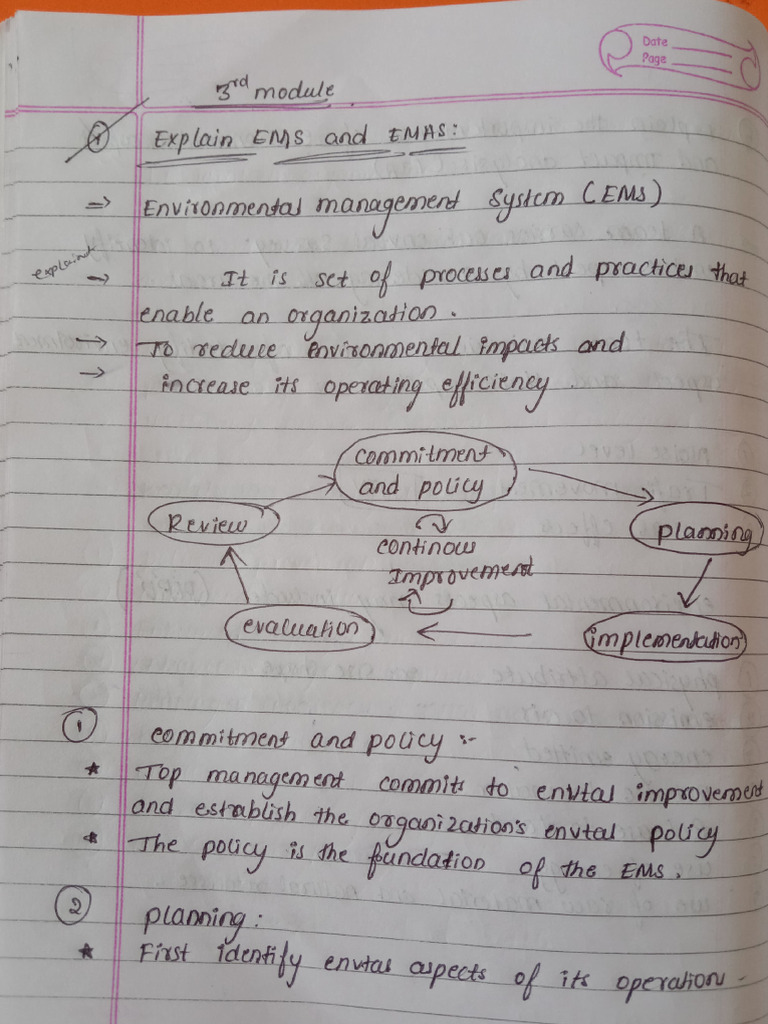 Date
Page
3rd module
1 Explain EMS and EMAS:
→ Environmental management System (EMS)
explaind
→ It is set of processes and practices that
enable an organization.
→ To reduce environmental impacts and
→ increase its operating efficiency.
commitment
and policy
Review
planning
continous
Improvement
evaluation
implementation
① commitment and policy :-
* Top management commits to envtal improvement
and establish the organization's envtal policy
* The policy is the fundation of the EMS.
② planning:
* First identify envtas aspects of its operation.